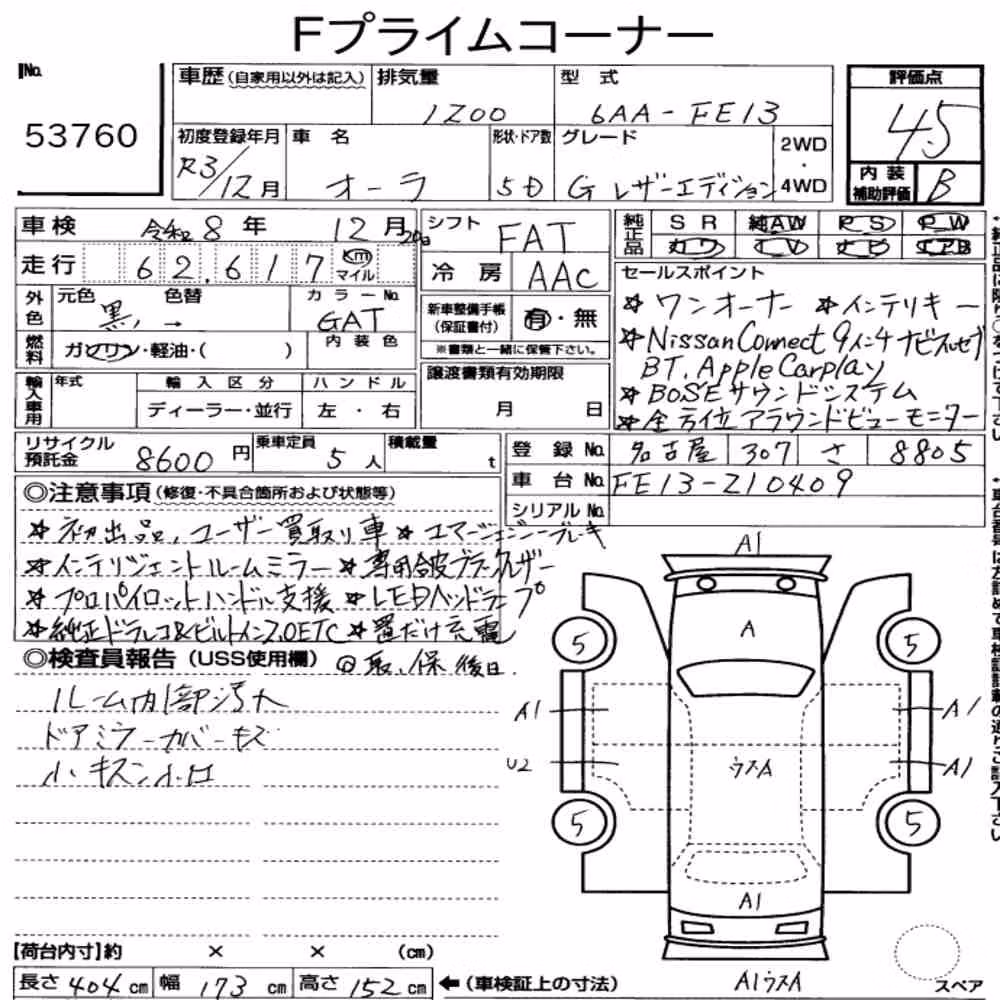 Fプライムコーナー
No.
53760
車歴(自家用以外は記入)
排気量
1200
型 式
6AA-FE13
評価点
4.5
初度登録年月
R3/12月
車 名
オーラ
形状・ドア数
5D
グレード
G レザーエディション
2WD
・
4WD
内 装
補助評価
B
車検 令和 8 年 12 月
シフト
FAT
純正品
SR 純AW PS PW
カワ TV ナビ エアB
走行 62,617 km マイル
冷 房
AAC
セールスポイント
☆ ワンオーナー ☆インテリキー
☆NissanConnect 9インチナビ
BT. AppleCarplay
☆BOSEサウンドシステム
☆全方位アラウンドビューモニター
外色
元色
黒
色替
→
カラーNo.
GAT
新車整備手帳
(保証書付)
有・無
※書類と一緒に保管下さい。
燃料
ガソリン・軽油・( )
内 装 色
輸入車用
年式
輸 入 区 分
ディーラー・並行
ハ ン ド ル
左 ・ 右
譲渡書類有効期限
月 日
リサイクル
預託金
8600円
乗車定員
5人
積載量
t
登 録 No.
名古屋 307 さ 8805
車 台 No.
FE13-210409
シリアル No.
◎注意事項(修復・不具合箇所および状態等)
☆初出品、ユーザー買取り車 ☆エマージェンシーブレーキ
☆インテリジェントルームミラー ☆専用合皮ブラックレザー
☆プロパイロット ハンドル支援 ☆LEDヘッドランプ
☆純正ドラレコ&ビルトイン2.0ETC ☆置だけ充電
◎検査員報告(USS使用欄) 取、保 後日
ルーム内部汚れ
ドアミラーカバーキズ
小キズ
A1
A
5
5
A1
A1
U2
ウスA
A1
5
5
A1
【荷台内寸】約 × × (cm)
長さ 404 cm 幅 173 cm 高さ 152 cm
←(車検証上の寸法)
A1ウスA
スペア